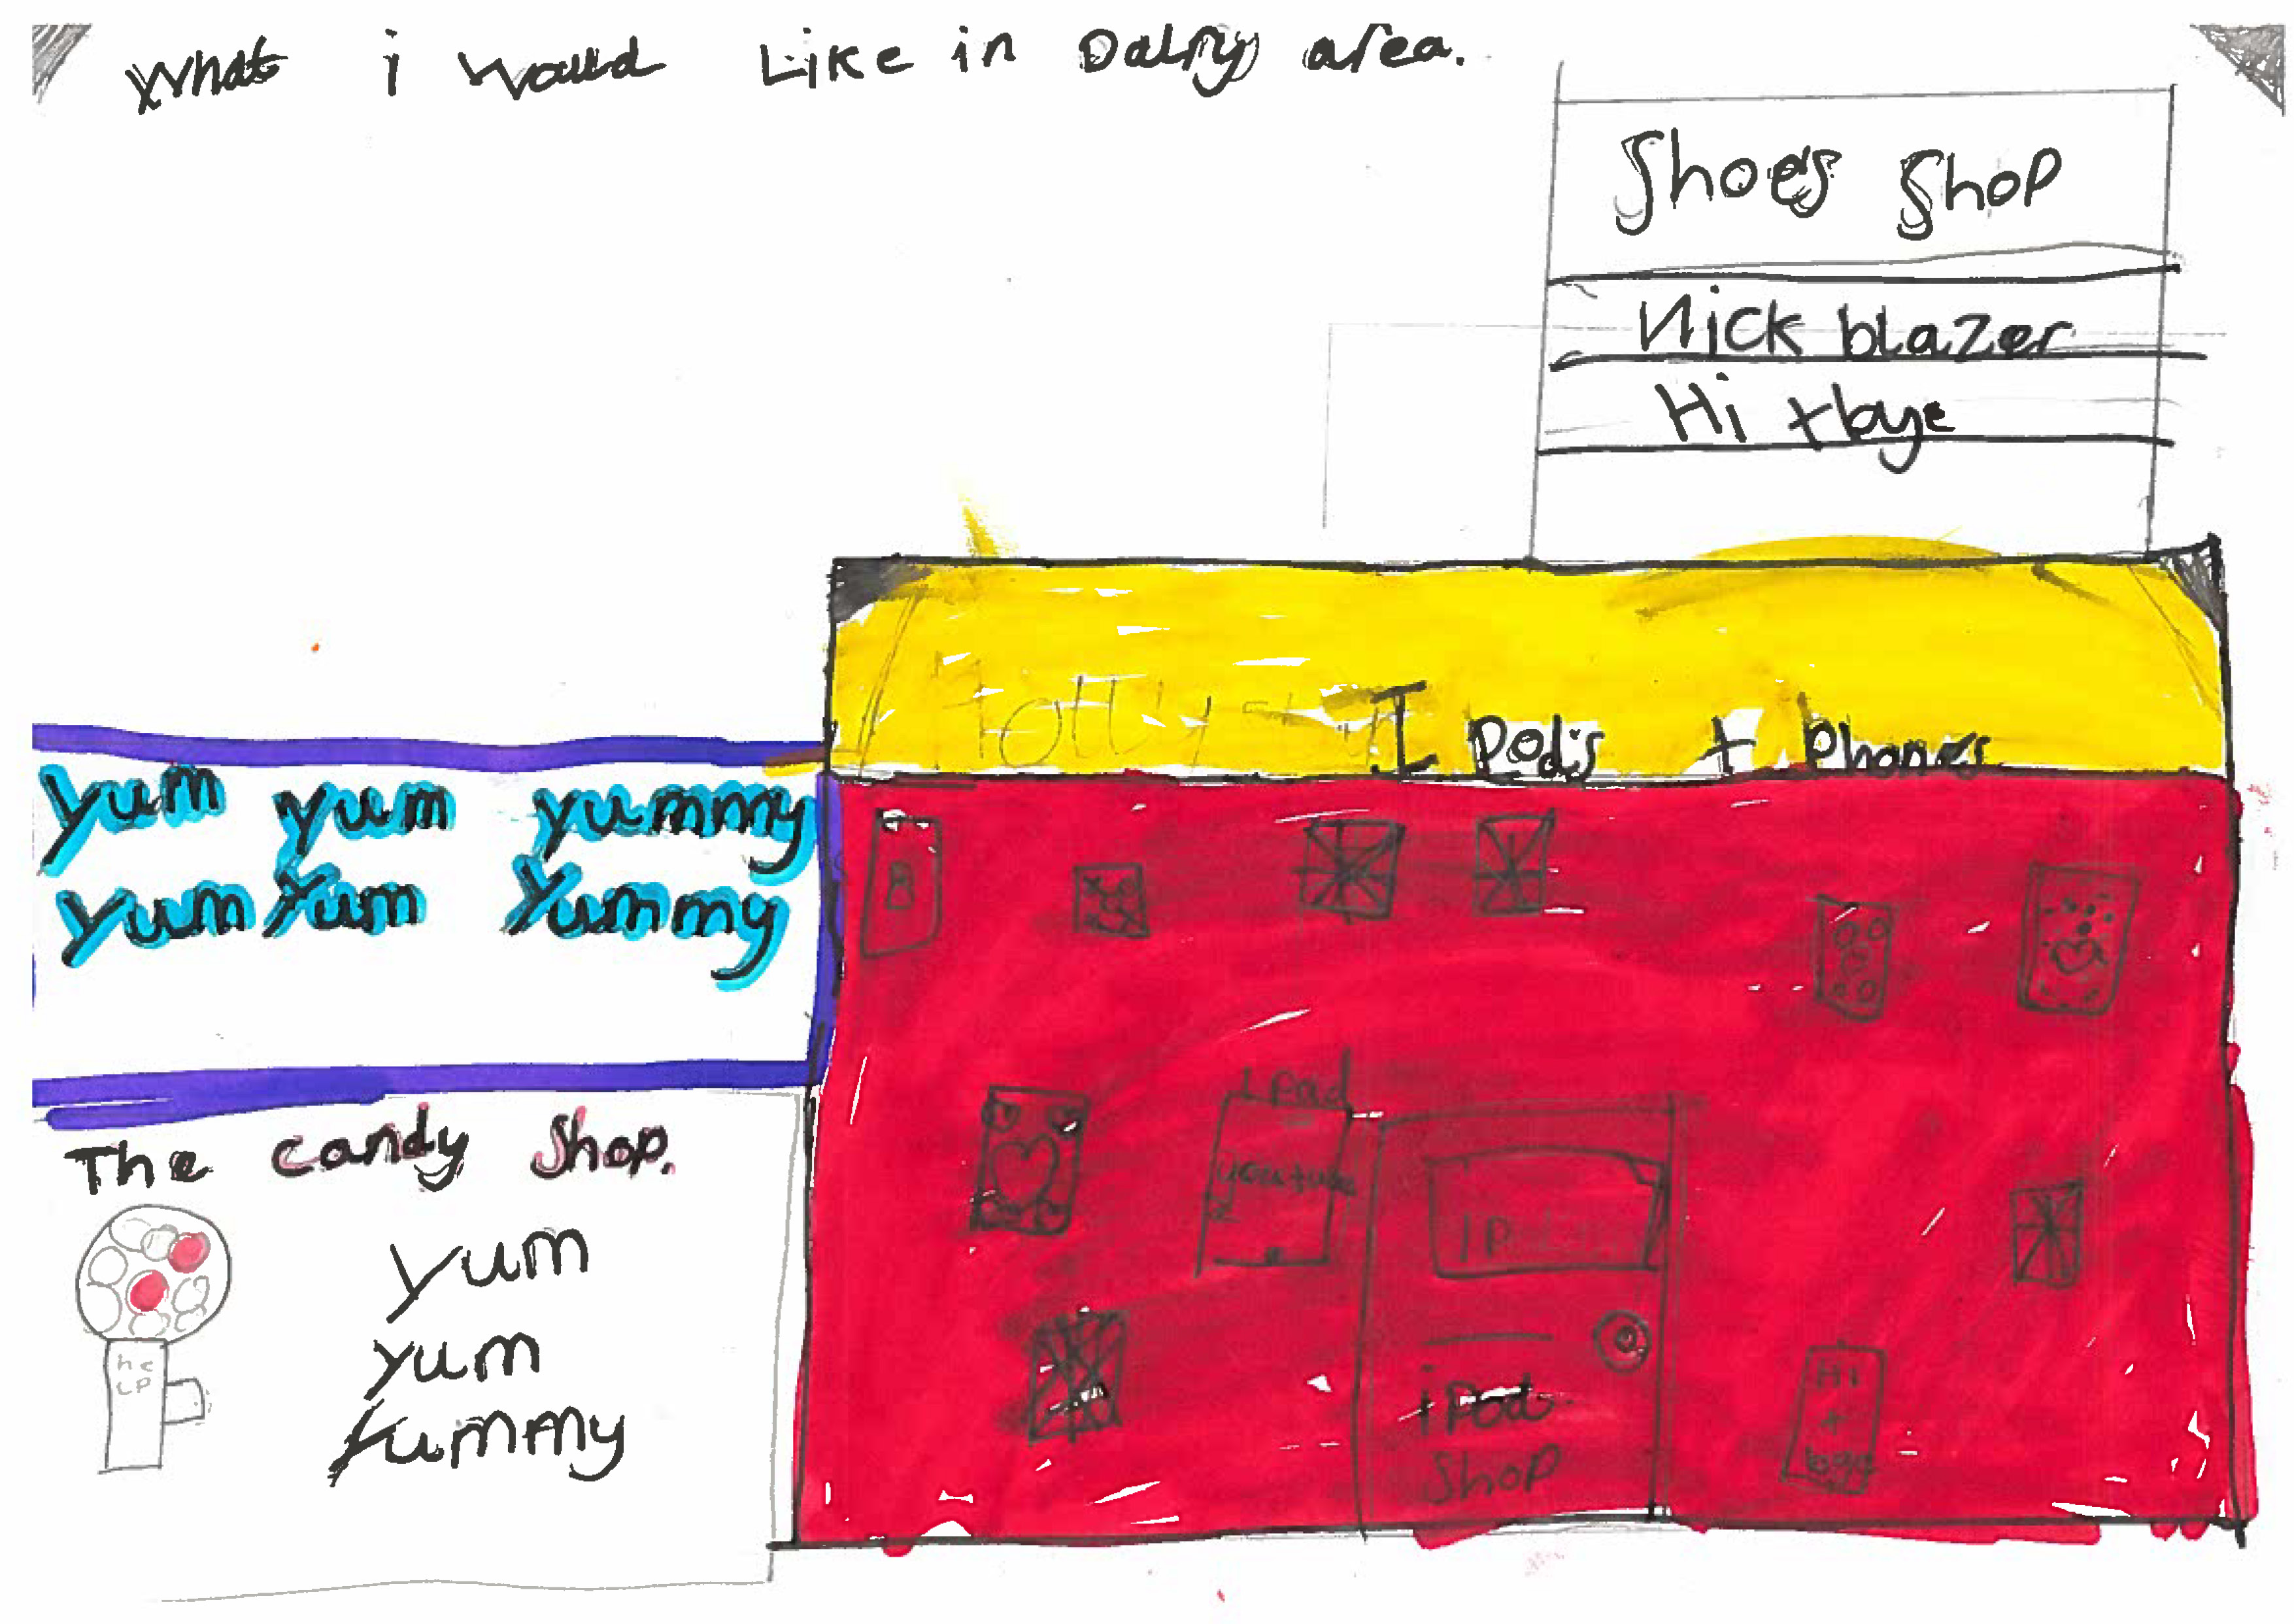 What i would Like in Dalry area.
Shoes Shop
Nick blazer
Hi + bye
I Pod's + Phones
yum yum yummy
yum yum yummy
The candy Shop.
yum
yum
yummy
he
LP
B
I Pad
youtube
IP
ipod
Shop
Hi
+
bye